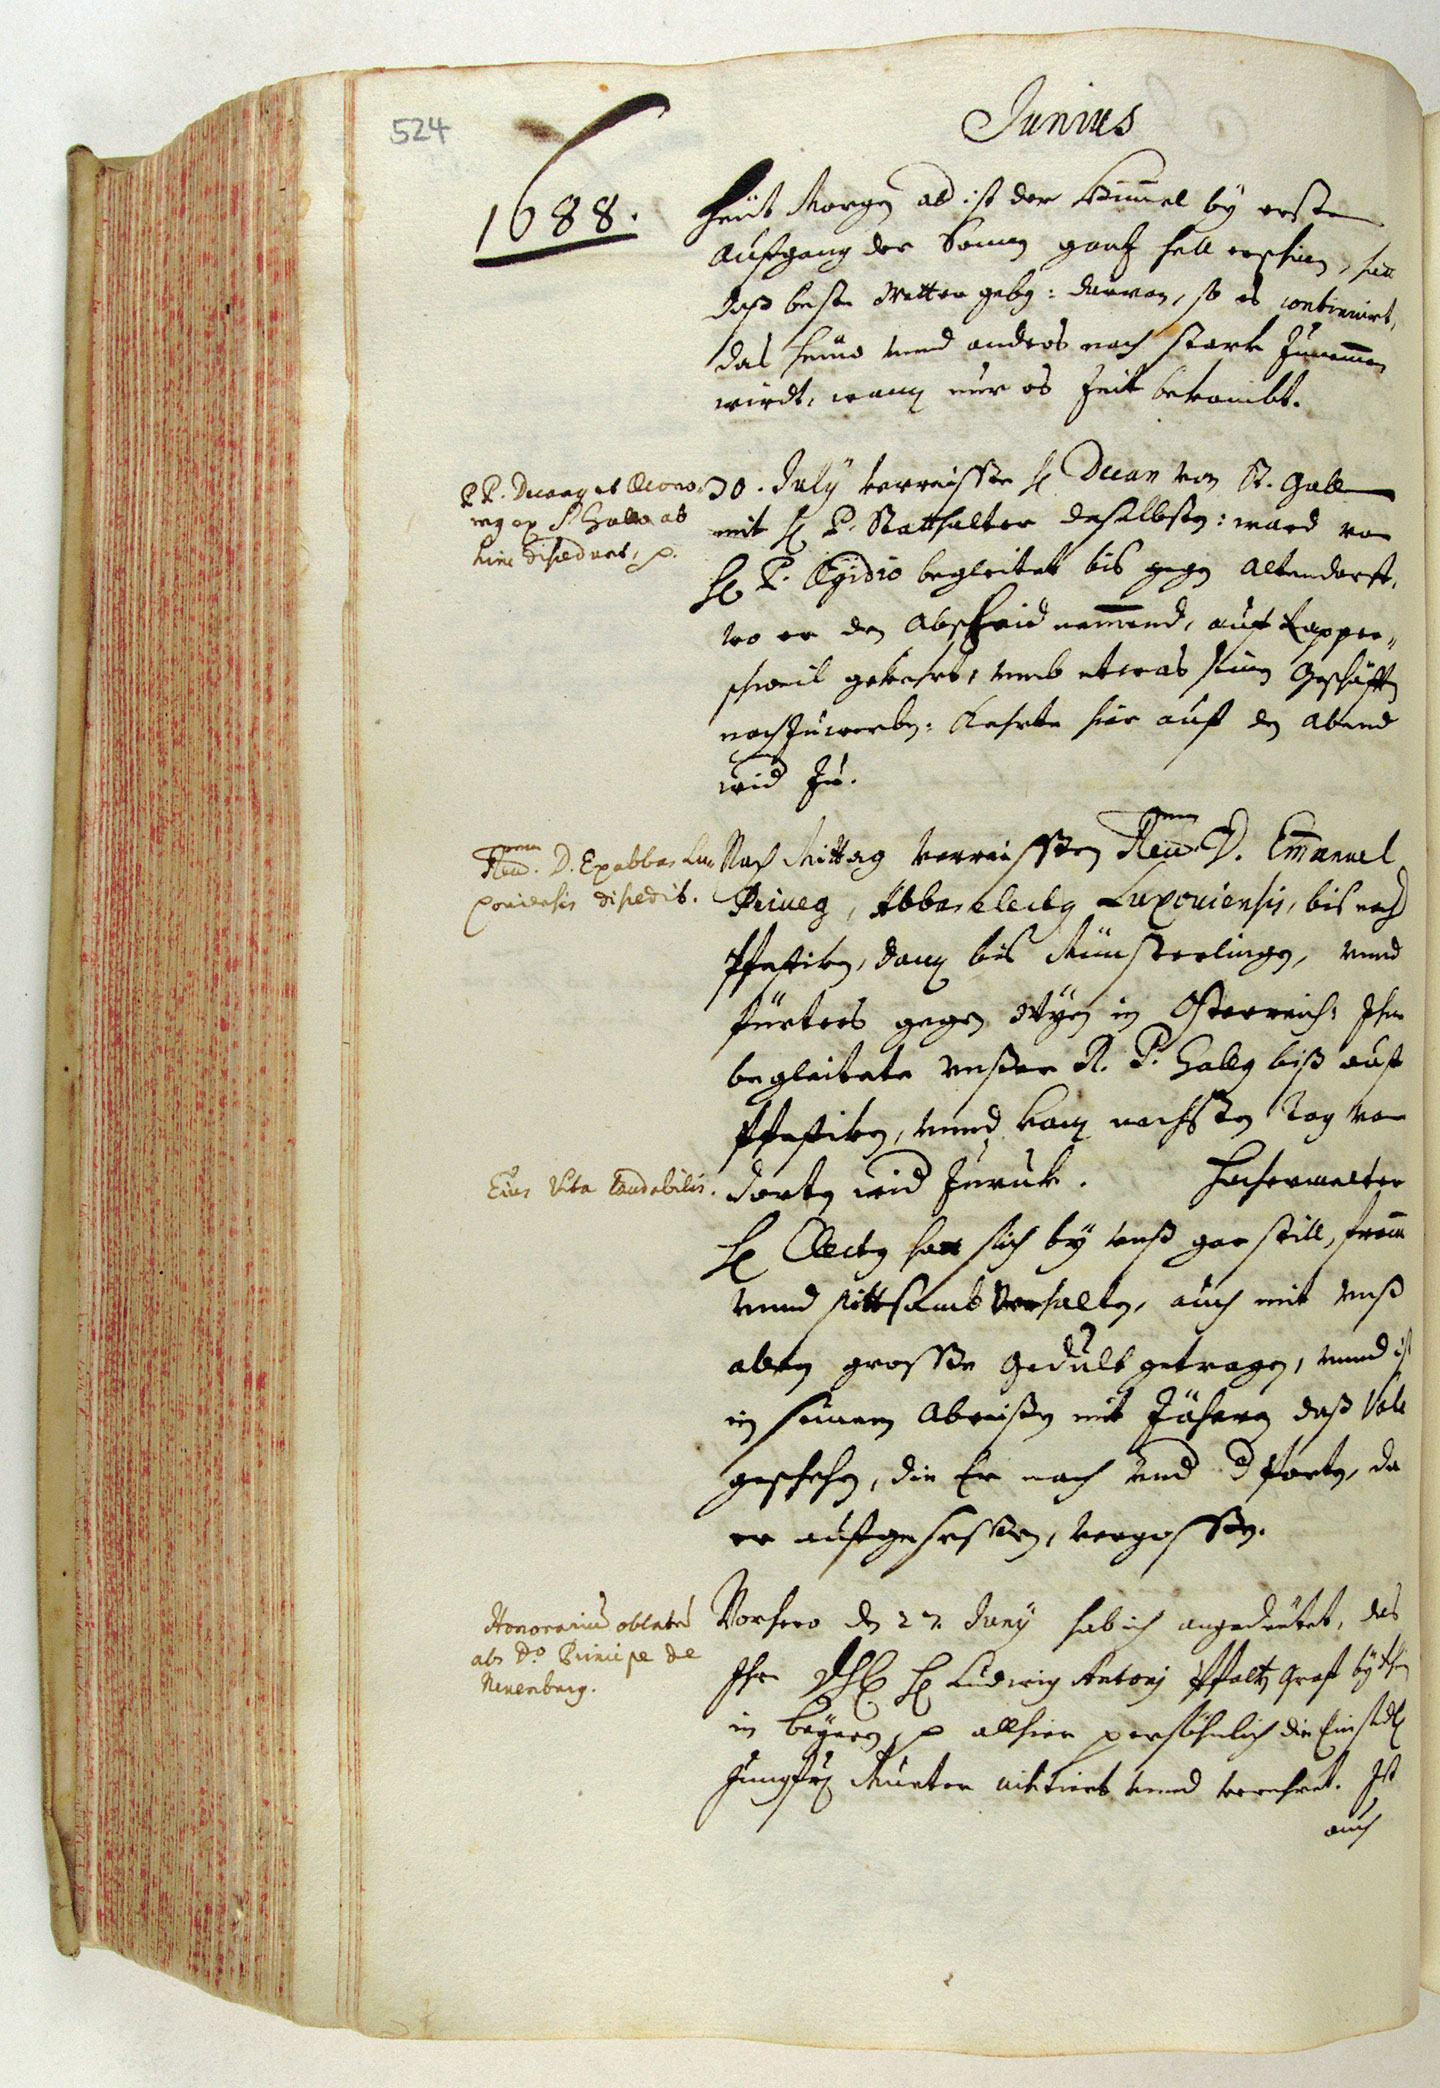 524
Junius
1688.
Heüt Morgen ab ist der Himmel by ersten
Aufgang der Sonnen gantz hell erschinen,
daß beste Wetter geben: darvon, so es continuirt,
das Heüw vnd anders noch starck zunemmen
wirdt, wann nur es Zeit bekombt.
P P. Decanus et Oecono-
mus ex S. Gallo ab
hinc discedunt, p.
30. July verreissete H. Decan von St. Gallen
mit H. P. Statthalter daselbsten: ward von
H. P. Ægidio begleitet bis gegen Altendorff,
wo er den Abscheid nemmend, auf Rapper-
schweil gekehrt, umb etwas seinen Geschäfften
nachzuwerben: kehrte hier auf den Abend
wid zu.
Reverendissimus D. Exabbas Lux-
ouiensis discedit.
Nach Mittag verreissten Reverendissimus D. Emmanuel
Priuen, Abbas electus Luxouiensis, bis nach
Pfeffiken, dann bis Münsterlingen, vnnd
fürters gegen Wyen in Osterreich: Ihne
begleitete vnser R. P. Gallus biß auf
Pfeffiken, vnnd kam nechsten Tag von
Eius Vita laudabilis.
dorten wid zuruk. Hochermelter
H. Electus hatt sich by vnß gar still, fromm
vnnd sittsamb verhalten, auch mit vnß
allen grosse Gedult getragen, vnnd ist
in seinem Abreißen mit Zäheren daß Vale
geschehen, die Er noch vnd d Porten, da
er aufgesessen, vergossen.
Honorarium oblatum
abs Do. Principe de
Neuenburg.
Vorhero den 27. Juny hab ich angedeütet, das
Ihr H. Ludwig Antonj Pfaltz Graf by Rhein
in Beyern, p allhier persöhnlich die Einsidl
Jungfr Mueter visitiert vnnd verehret. Ist
auch